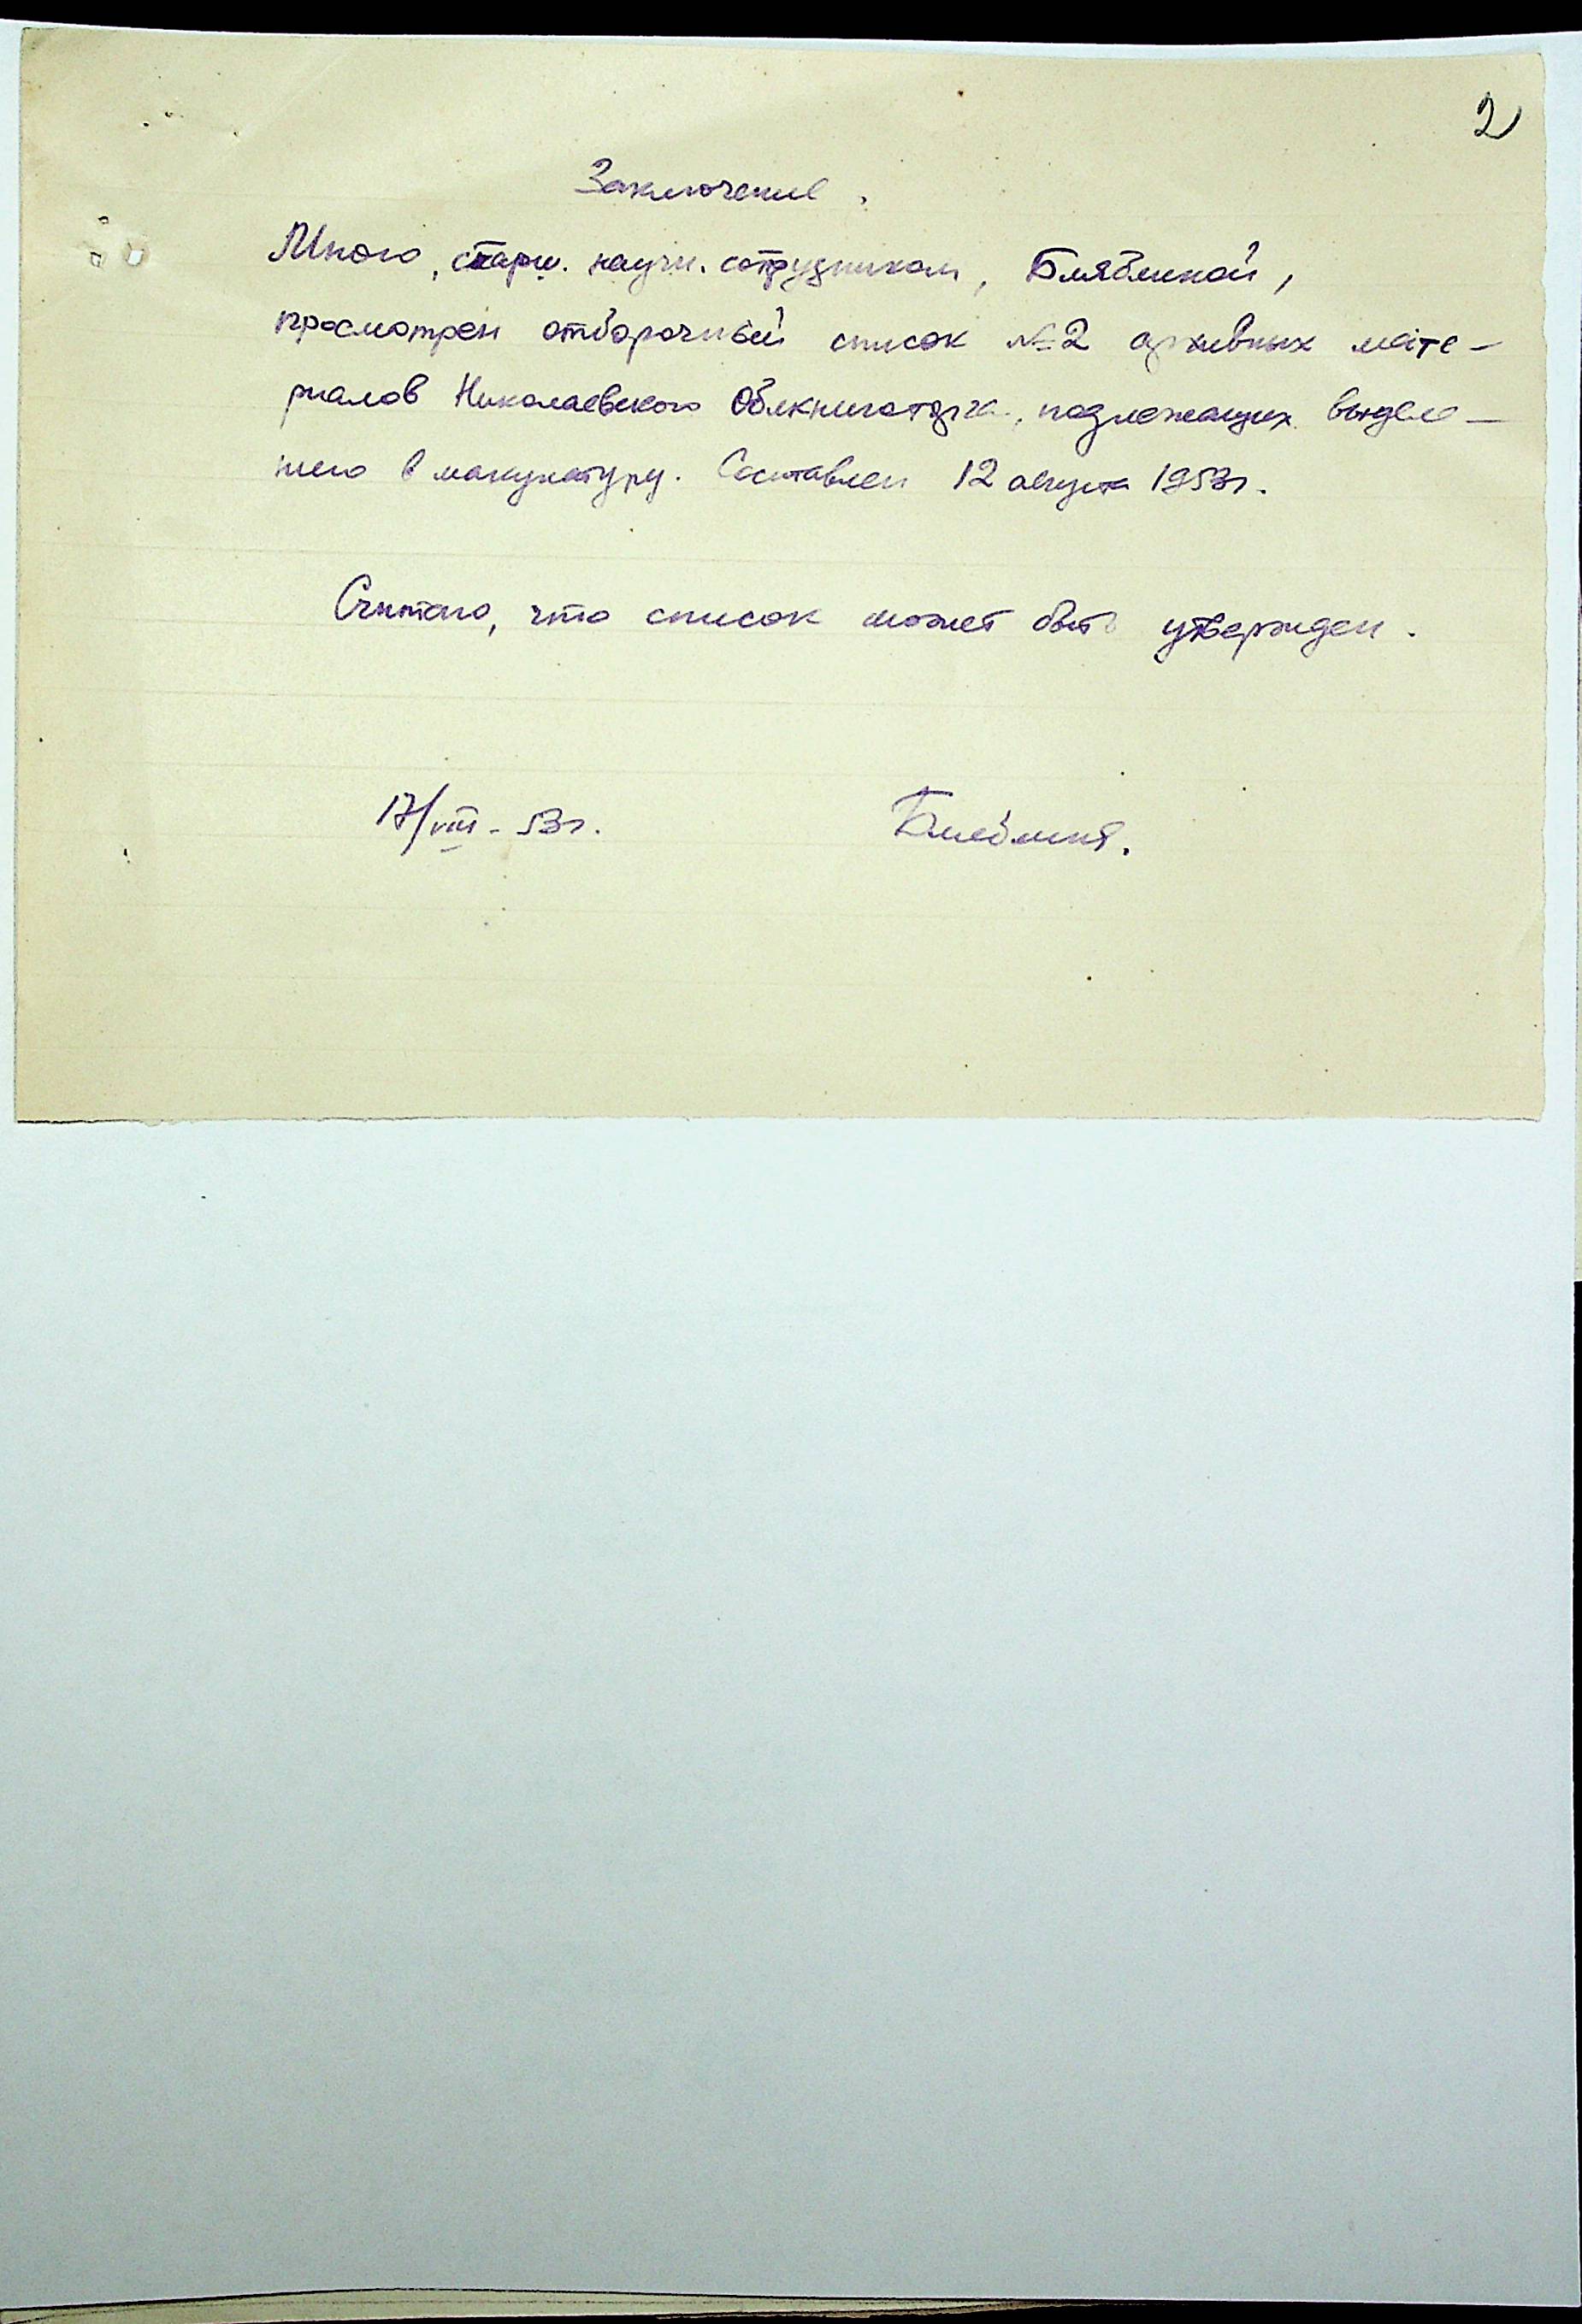 2
Заключение.
Мною, старш. научн. сотрудником,
просмотрен отборочный список №2 архивных мате-
риалов Николаевского Облкниготорга, подлежащих выделе-
нию в макулатуру. Составлен 12 августа 1953г.
Считаю, что список может быть утвержден.
17/VIII - 53г.